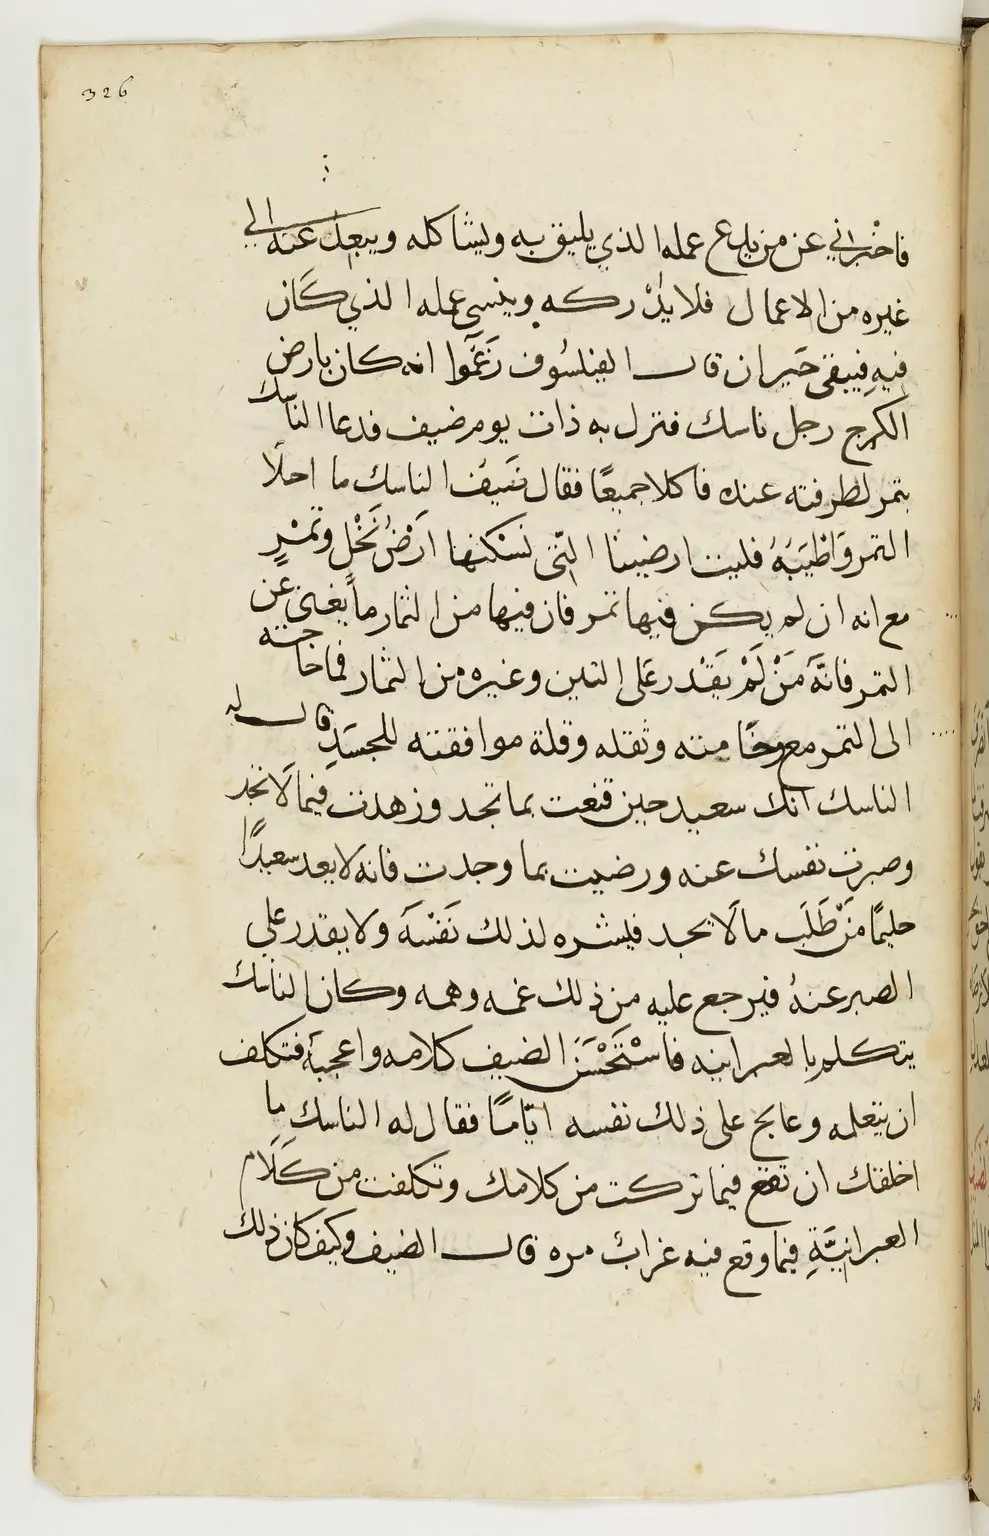 326
فاخبراني عن من يدع عمله الذي يليق به ويشاكله ويبعد عنه الي
غيره من الاعمال فلا يدركه وينسي عمله الذي كان
فيه فيبقى حيران قال الفيلسوف زعموا انه كان بارض
الكرج رجل ناسك فنزل به ذات يوم ضيف فدعا الناسك
بتمر لطرفته عنده فاكلا جميعًا فقال ضيف الناسك ما احلا
التمر واطيبه فليت ارضينا التي نسكنها ارض نخل وتمر
مع انه ان لم يكن فيها تمر فان فيها من الثمار ما يغني عن
التمر فانه من لم يقدر على التين وغيره من الثمار فما حاجته
الى التمر مع وخامته وثقله وقلة موافقته للجسد قال له
الناسك انك سعيد حين قنعت بما تجد وزهدت فيما لا تجد
وصبرت نفسك عنه ورضيت بما وجدت فانه لا يعد سعيدًا
حليمًا من طلب ما لا يجد فليشره لذلك نفسه ولا يقدر علي
الصبر عنه فيرجع عليه من ذلك غمه وهمه وكان الناسك
يتكلم بالعبرانيه فاستحسن الضيف كلامه واعجبه فتكلف
ان يتعلمه وعالج على ذلك نفسه ايامًا فقال له الناسك ما
اخلقك ان تقع فيما تركت من كلامك وتكلفت من كلام
العبرانية فيما وقع فيه غراب مره قال الضيف وكيف كان ذلك